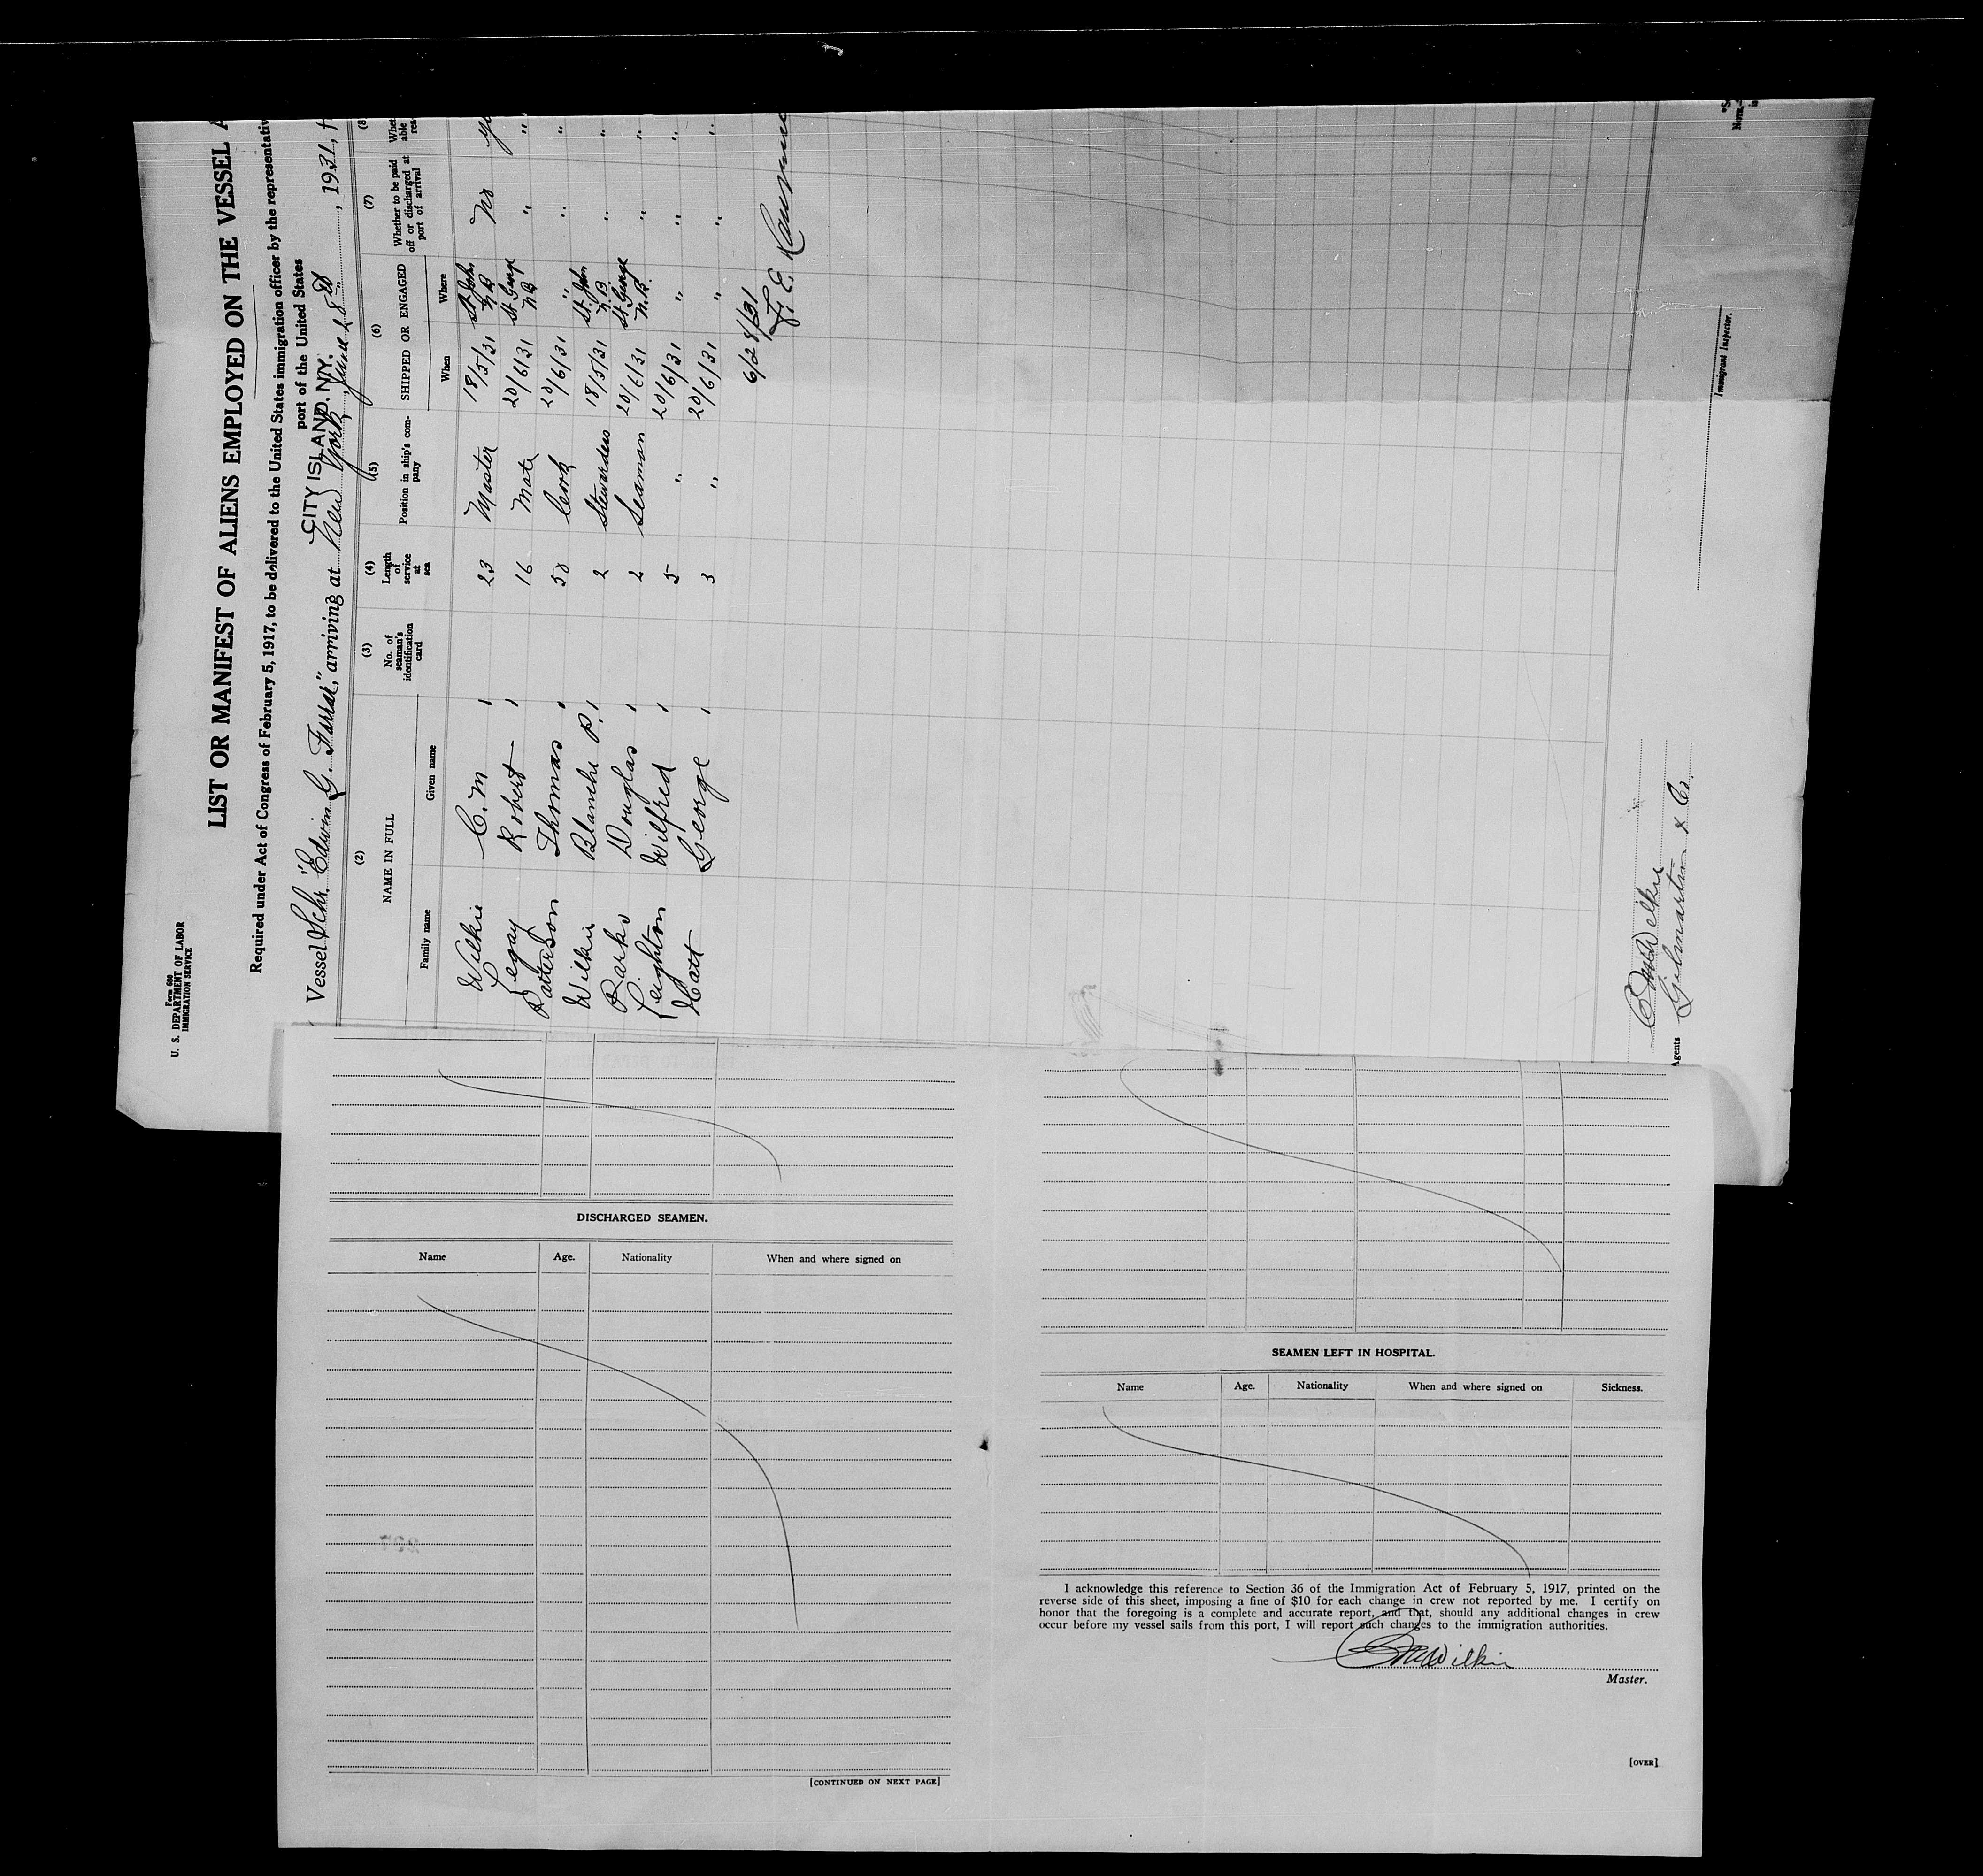 Form 680
U. S. DEPARTMENT OF LABOR
IMMIGRATION SERVICE
LIST OR MANIFEST OF ALIENS EMPLOYED ON THE VESSEL A
Required under Act of Congress of February 5, 1917, to be delivered to the United States immigration officer by the representativ
port of the United States
CITY ISLAND. N.Y.
Vessel Schr. "Edwin G. Farrar", arriving at New York, June 28th, 1931, f
(2) (3) (4) (5) (6) (7) (8
NAME IN FULL
Family name Given name
No. of seaman's identification card
Length of service at sea
Position in ship's com-pany
SHIPPED OR ENGAGED
When Where
Whether to be paid off or discharged at port of arrival
Whet able rea
Wilkie C. M 23 Master 18/5/31 St John N B No
Legay Robert 16 Mate 20/6/31 St George N.B. " "
Patterson Thomas 50 Cook 20/6/31 " " "
Wilkie Blanche P. 2 Stewardess 18/5/31 St. John N.B " "
Parks Douglas 2 Seaman 20/6/31 St. George N.B. " "
Leighton Wilfred 5 " 20/6/31 " " "
Hatt George 3 " 20/6/31 " " "
6/28/31
C M Wilkie
Agents Gilmartin & Co.
Immigrant Inspector.
DISCHARGED SEAMEN.
Name Age. Nationality When and where signed on
[CONTINUED ON NEXT PAGE]
SEAMEN LEFT IN HOSPITAL.
Name Age. Nationality When and where signed on Sickness.
I acknowledge this reference to Section 36 of the Immigration Act of February 5, 1917, printed on the
reverse side of this sheet, imposing a fine of $10 for each change in crew not reported by me. I certify on
honor that the foregoing is a complete and accurate report, and that, should any additional changes in crew
occur before my vessel sails from this port, I will report such changes to the immigration authorities.
C M Wilkie
Master.
[OVER]